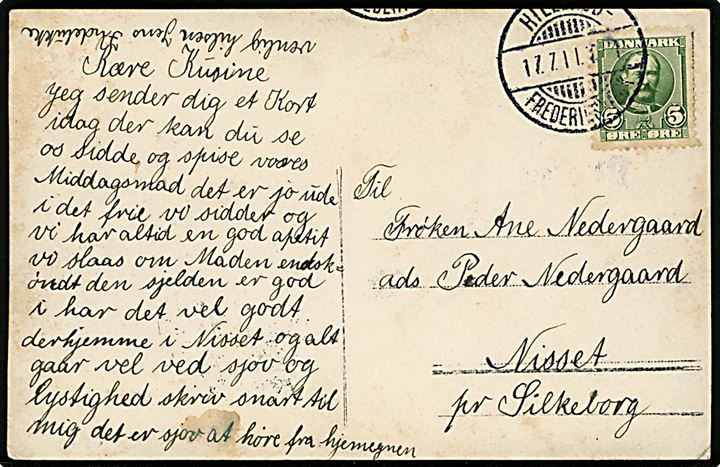 Kære Kusine
jeg sender dig et Kort
idag der kan du se
os sidde og spise vores
Middagsmad det er jo ude
i det frie vi sidder og
vi har altid en god apetit
vi slaas om Maden endsk-
øndt den sjelden er god
i har det vel godt
derhjemme i Nisset og alt
gaar vel ved sjov og
lystighed skriv snart til
mig det er sjov at høre fra hjemegnen
venlig hilsen Jens
Til
Frøken Ane Nedergaard
ads Peder Nedergaard
Nisset
pr Silkeborg
17.7.11
FREDERI
DANMARK
5 5
ØRE ØRE